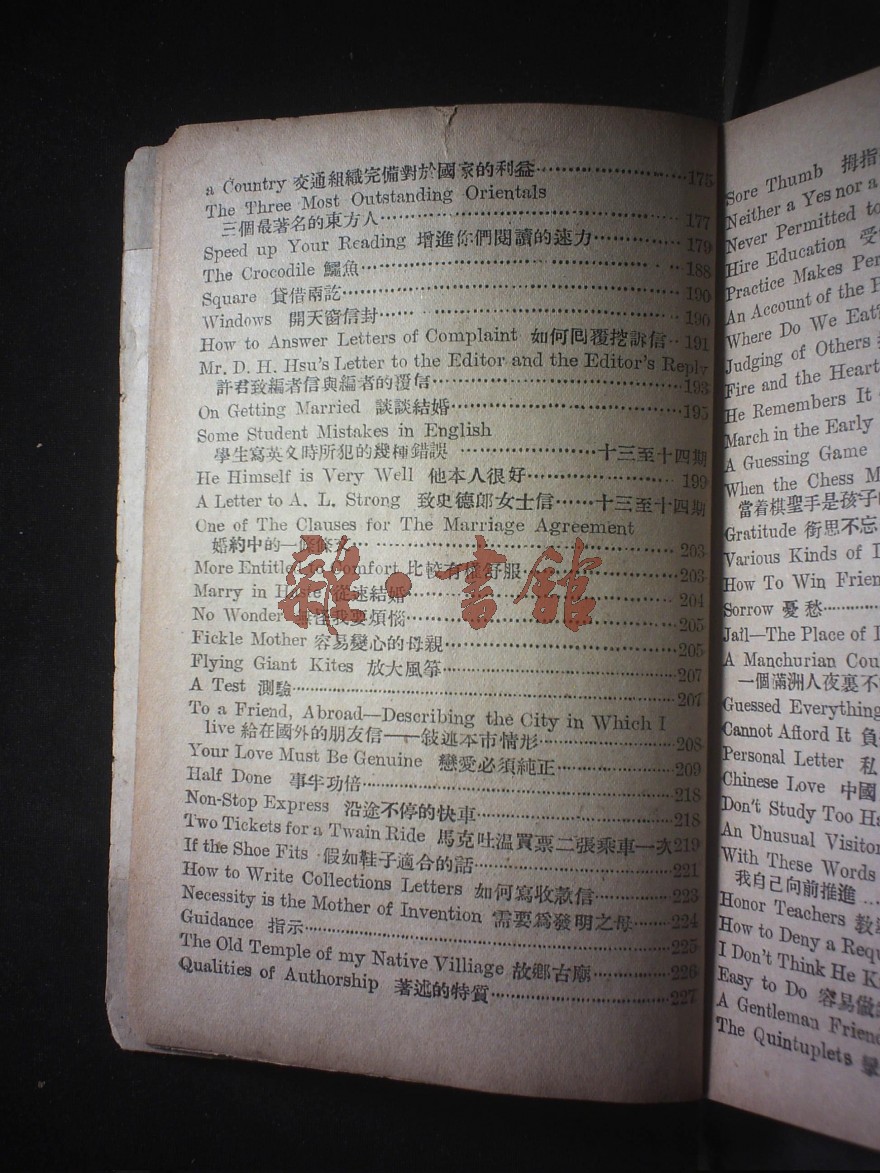 a Country 交通組織完備對於國家的利益··················175
The Three Most Outstanding Orientals
三個最著名的東方人·································· 177
Speed up Your Reading 增進你們閱讀的速力············179
The Crocodile 鱷魚·································188
Square 貸借兩訖·····································190
Windows 開天窗信封·································190
How to Answer Letters of Complaint 如何囘覆挖訴信··191
Mr. D. H. Hsu's Letter to the Editor and the Editor's Reply
許君致編者信與編者的覆信····························193
On Getting Married 談談結婚·························195
Some Student Mistakes in English
學生寫英文時所犯的幾種錯誤 ···············十三至十四期
He Himself is Very Well 他本人很好··················199
A Letter to A. L. Strong 致史德郎女士信······十三至十四期
One of The Clauses for The Marriage Agreement
婚約中的一條條·····································203
More Entitled to Comfort 比較有權舒服···············203
Marry in Haste 從速結婚·····························204
No Wonder 無怪我要煩惱·····························205
Fickle Mother 容易變心的母親························205
Flying Giant Kites 放大風箏·························207
A Test 測驗·········································207
To a Friend, Abroad—Describing the City in Which I
live 給在國外的朋友信——敍述本市情形···············208
Your Love Must Be Genuine 戀愛必須純正·············209
Half Done 事半功倍··································218
Non-Stop Express 沿途不停的快車·····················218
Two Tickets for a Twain Ride 馬克吐温買票二張乘車一次219
If the Shoe Fits 假如鞋子適合的話···················221
How to Write Collections Letters 如何寫收款信·······223
Necessity is the Mother of Invention 需要爲發明之母·····224
Guidance 指示·······································225
The Old Temple of my Native Villiage 故鄉古廟········226
Qualities of Authorship 著述的特質···················227
雜·書館
Sore Thumb 拇指
Neither a Yes nor a
Never Permitted to
Hire Education 受
Practice Makes Per
An Account of the P
Where Do We Eat
Judging of Others
Fire and the Heart
He Remembers It
March in the Early
A Guessing Game
When the Chess M
當着棋聖手是孩子
Gratitude 銜思不忘
Various Kinds of
How To Win Frien
Sorrow 憂愁············
Jail—The Place of
A Manchurian Cou
一個滿洲人夜裏不
Guessed Everything
Cannot Afford It 負
Personal Letter 私
Chinese Love 中國
Don't Study Too Ha
An Unusual Visitor
With These Words
我自己向前推進 ...
Honor Teachers 教
How to Deny a Requ
I Don't Think He K
Easy to Do 容易做
A Gentleman Friend
The Quintuplets